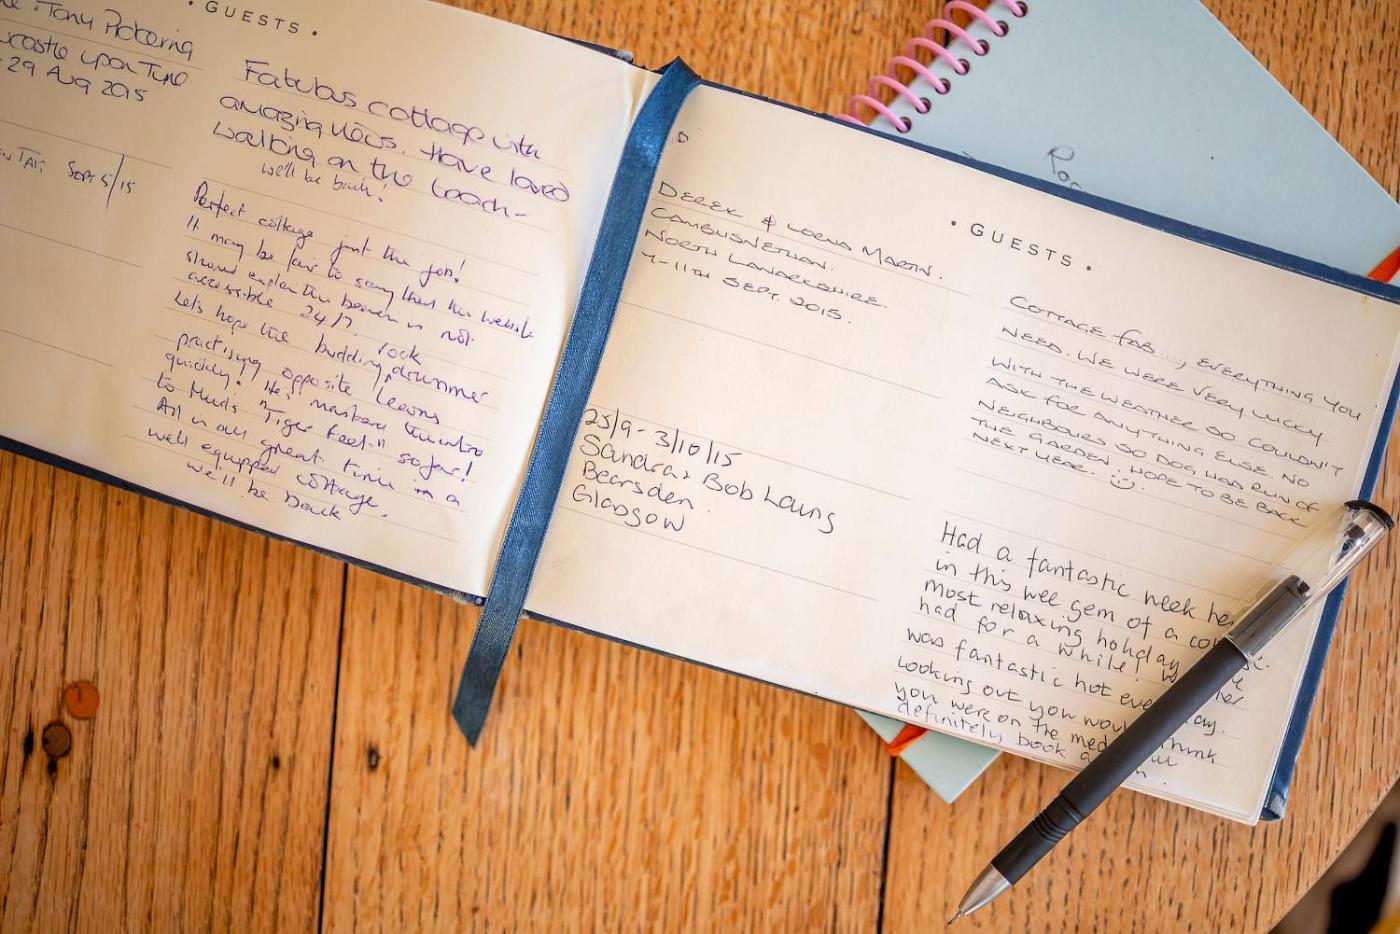 • GUESTS •
Tony Pickering
upon Tyne
29 Aug 2015
Sept 5/15
Fabulous cottage with
amazing views. Have loved
walking on the beach -
we'll be back!
Perfect cottage just the job!
It may be fair to say that the website
should explain the is not
accessible 24/7.
Let's hope the budding rock drummer
practising opposite learns
quickly! He's mastered the intro
to Mud's "Tiger Feet" so far!
All in all great time in a
well equipped cottage.
we'll be back
• GUESTS •
DEREK & LORNA MARTIN.
CAMBUSNETHAN.
NORTH LANARKSHIRE.
4-11TH SEPT. 2015.
COTTAGE FAB..., EVERYTHING YOU
NEED. WE WERE VERY LUCKY
WITH THE WEATHER SO COULDN'T
ASK FOR ANYTHING ELSE. NO
NEIGHBOURS SO DOG HAD RUN OF
THE GARDEN. HOPE TO BE BACK
NEXT YEAR. ☺
25/9 - 3/10/15
Sandra + Bob Laing
Bearsden.
Glasgow
Had a fantastic week
in this wee gem of a
most relaxing holiday
had for a while!
was fantastic hot day.
Looking out you would think
you were on the med
definitely book